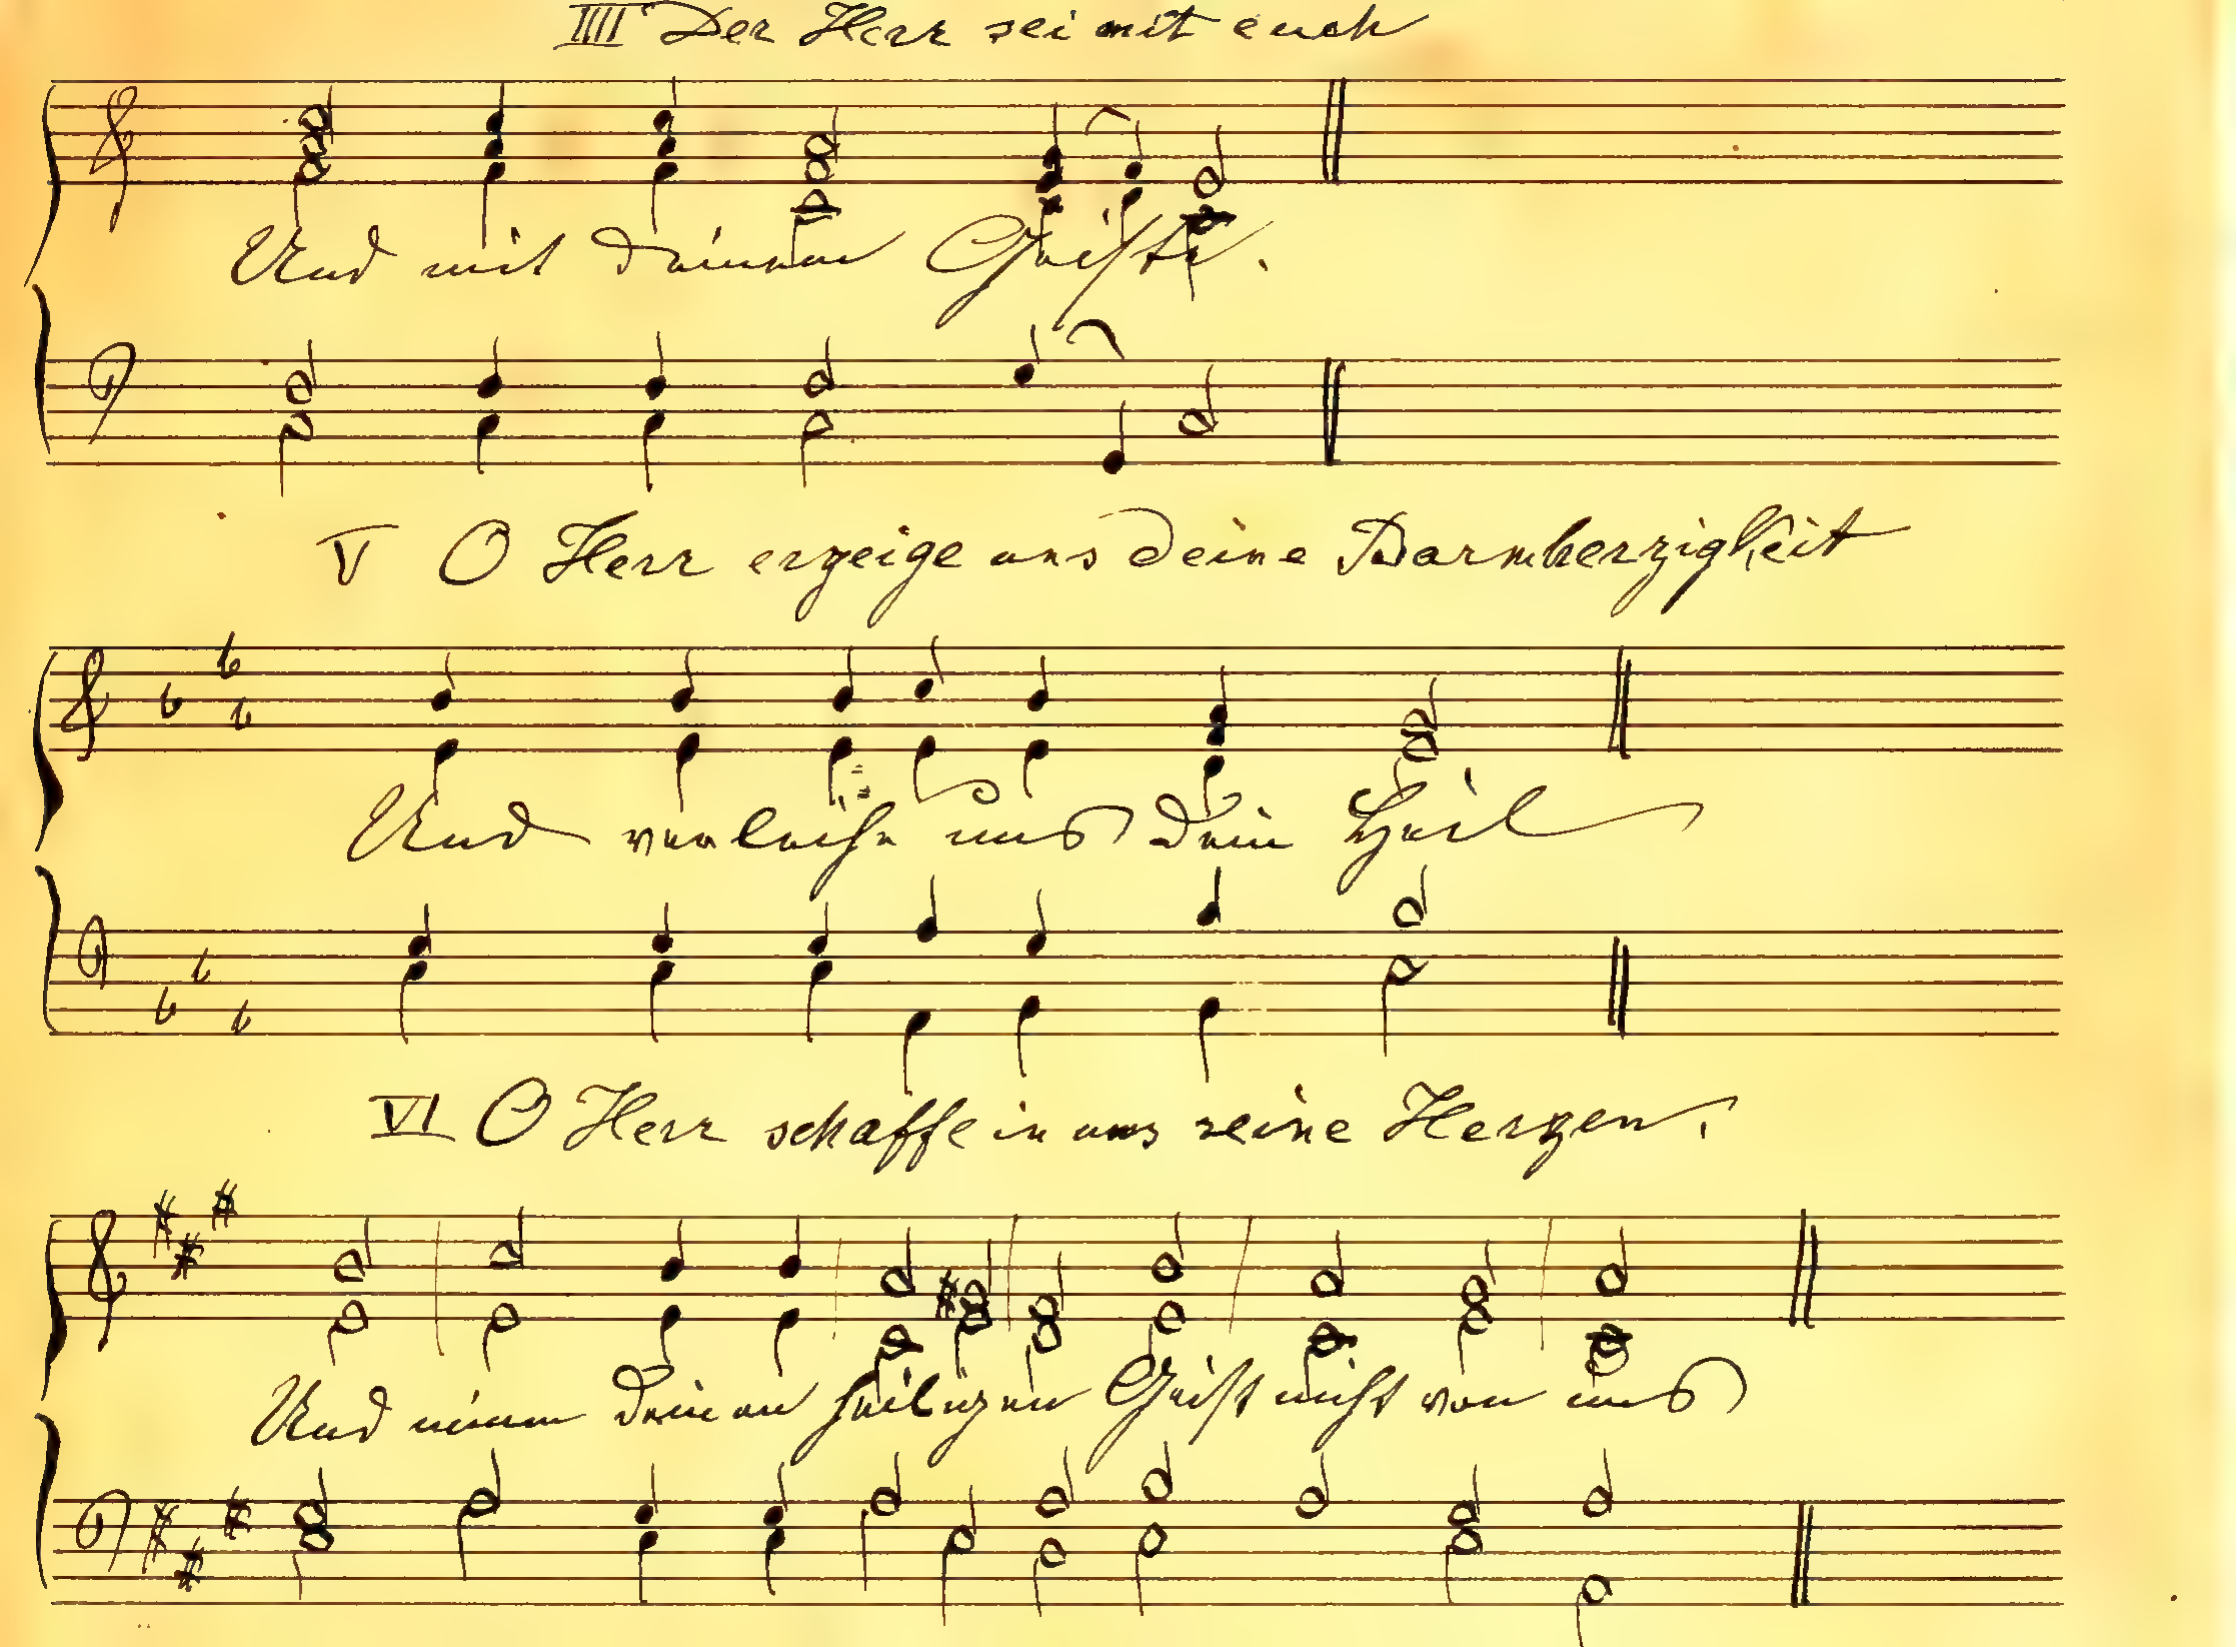 IIII Der Herr sei mit euch
Und mit deinem Geiste.
V O Herr erzeige uns deine Barmherzigkeit
Und verleihe uns dein Heil
VI O Herr schaffe in uns reine Herzen.
Und nimm deinen heiligen Geist nicht von uns